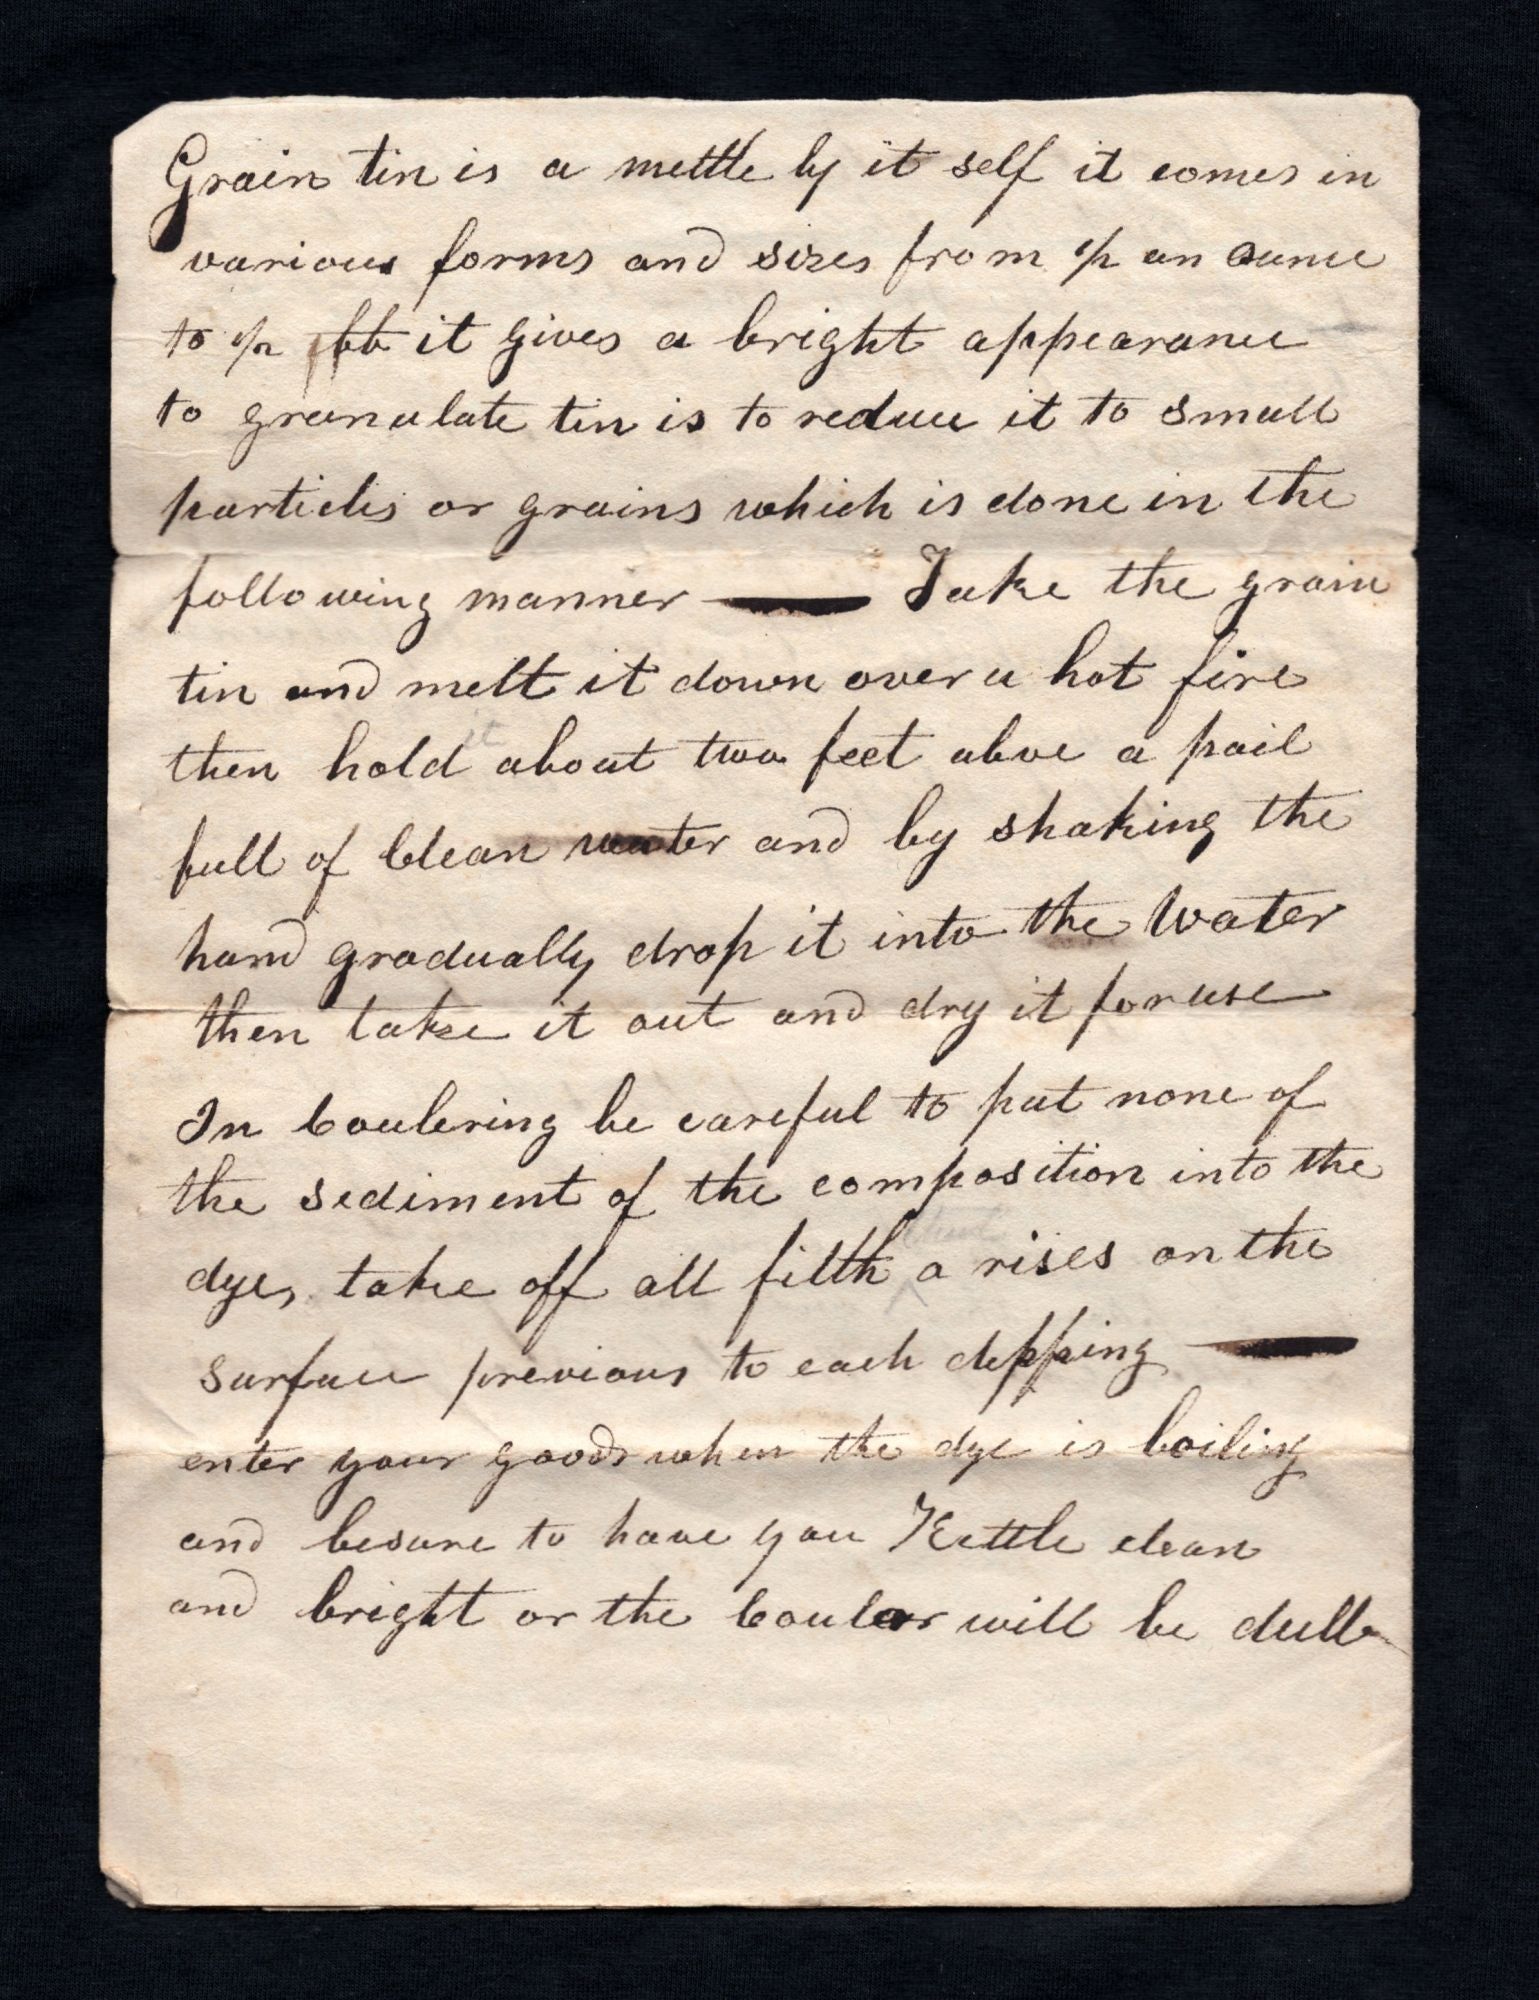 Grain tin is a mettle by it self it comes in
various forms and sizes from 1/2 an ounce
to 1/2 lb it gives a bright appearance
to granulate tin is to reduce it to small
particles or grains which is done in the
following manner — Take the grain
tin and melt it down over a hot fire
then hold it about two feet above a pail
full of Clean water and by shaking the
hand gradually drop it into the Water
then take it out and dry it for use
In Coulering be careful to put none of
the sediment of the composition into the
dye, take off all filth that a rises on the
surface previous to each depping —
enter your goods when the dye is boiling
and besure to have you Kettle clean
and bright or the Couler will be dull